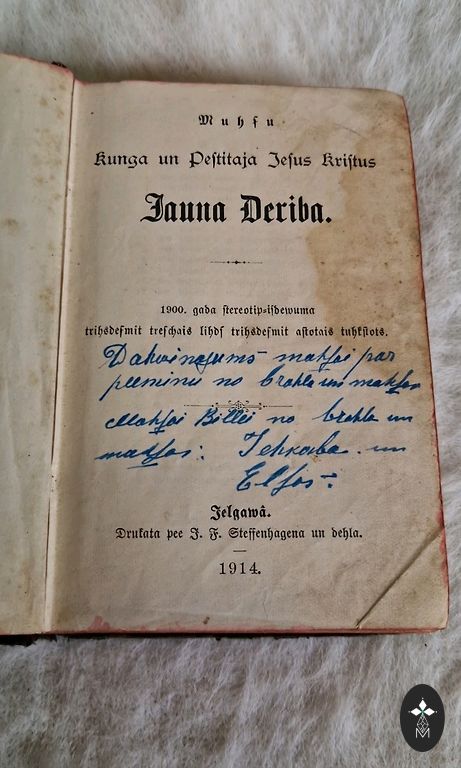 Muhſu
Kunga un Peſtitaja Jeſus Kriſtus
Jauna Deriba.
1900. gada ſtereotip-iſdewuma
trihsdeſmit treſchais lihdſ trihsdeſmit aſtotais tuhkſtots.
Dahwinajums mahſai par
peeminu no brahļa un mahſas
Mahſai Billei no brahļa un
mahſas: Jehkaba un
Elſas
Jelgawâ.
Drukata pee J. F. Steffenhagena un dehla.
1914.
M